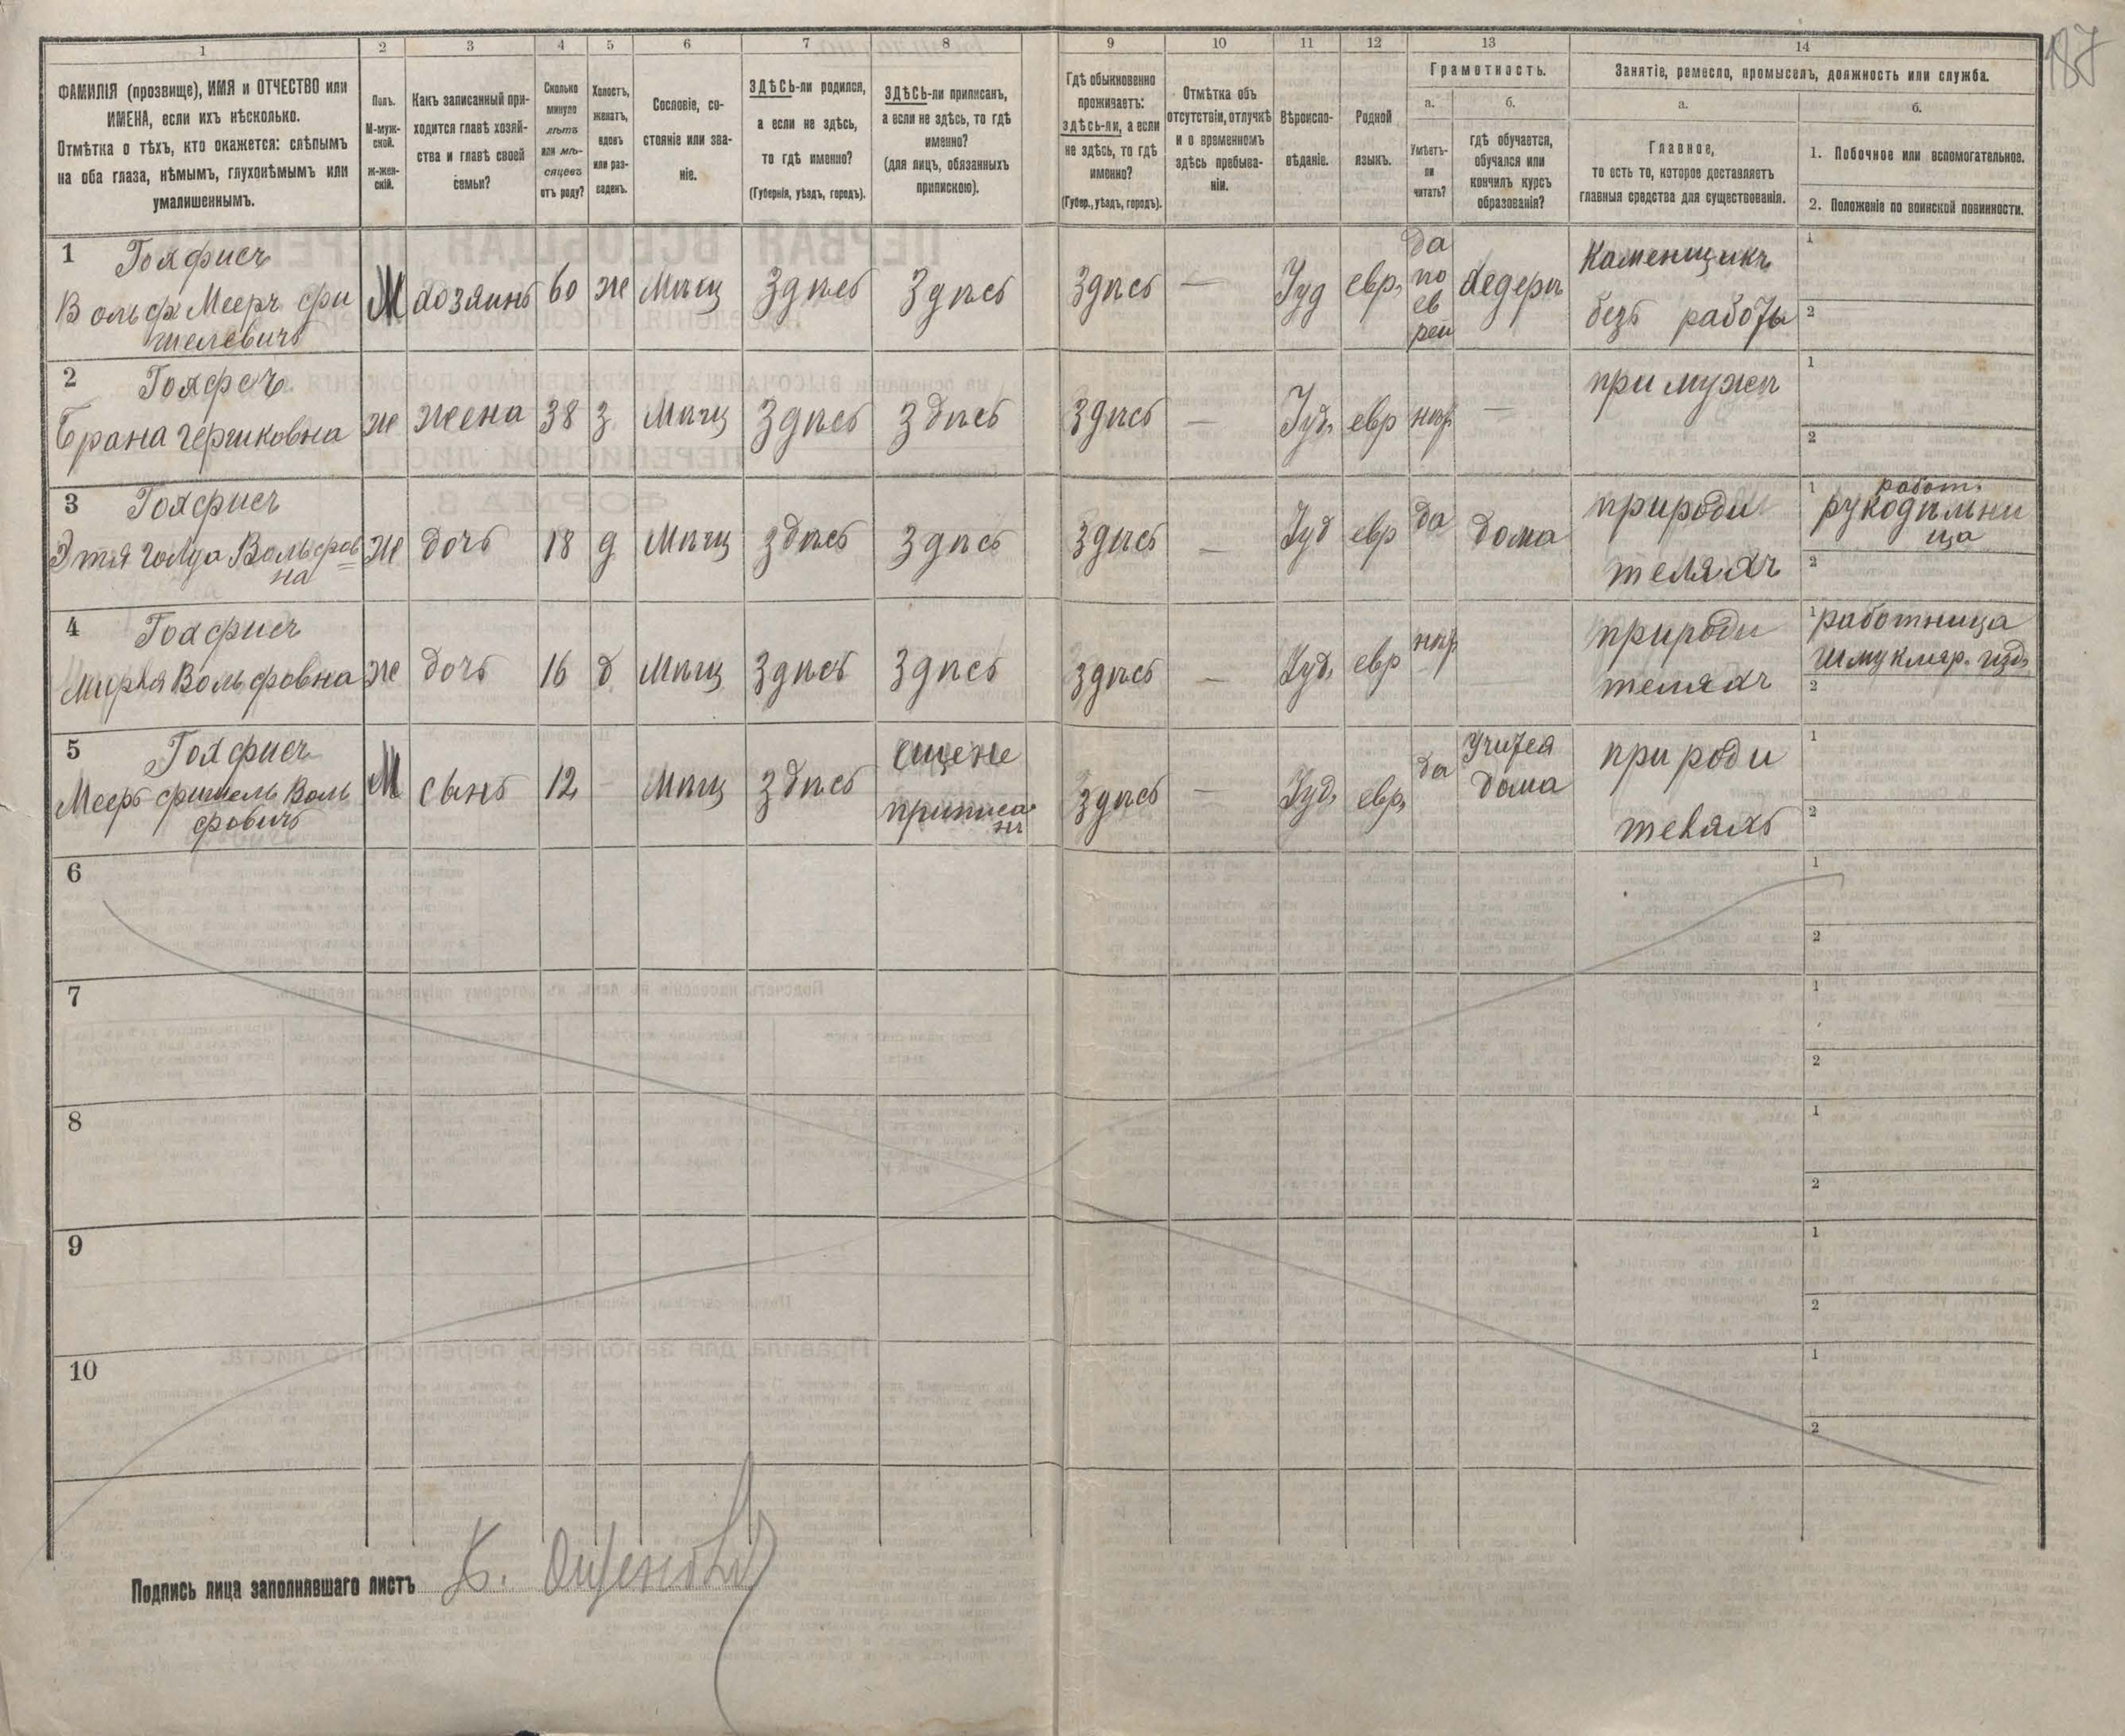 1 2 3 4 5 6 7 8 9 10 11 12 13 14
187
ФАМИЛІЯ (прозвище), ИМЯ и ОТЧЕСТВО или
ИМЕНА, если ихъ нѣсколько.
Отмѣтка о тѣхъ, кто окажется: слѣпымъ
на оба глаза, нѣмымъ, глухонѣмымъ или
умалишеннымъ.
Полъ.
М-муж-
ской.
Ж-жен-
скій.
Какъ записанный при-
ходится главѣ хозяй-
ства и главѣ своей
семьи?
Сколько
минуло
лѣтъ
или мѣ-
сяцевъ
отъ роду?
Холостъ,
женатъ,
вдовъ
или раз-
веденъ.
Сословіе, со-
стояніе или зва-
ніе.
ЗДѢСЬ-ли родился,
а если не здѣсь,
то гдѣ именно?
(Губернія, уѣздъ, городъ).
ЗДѢСЬ-ли приписанъ,
а если не здѣсь, то гдѣ
именно?
(для лицъ, обязанныхъ
припискою).
Гдѣ обыкновенно
проживаетъ:
здѣсь-ли, а если
не здѣсь, то гдѣ
именно?
(Губер., уѣздъ, городъ).
Отмѣтка объ
отсутствіи, отлучкѣ
и о временномъ
здѣсь пребыва-
ніи.
Вѣроиспо-
вѣданіе.
Родной
языкъ.
Грамотность.
а.
Умѣетъ-
ли
читать?
б.
гдѣ обучается,
обучался или
кончилъ курсъ
образованія?
Занятіе, ремесло, промыселъ, должность или служба.
а.
Главное,
то есть то, которое доставляетъ
главныя средства для существованія.
б.
1. Побочное или вспомогательное.
2. Положеніе по воинской повинности.
1 Гохфисъ
Вольфъ Мееръ фи
шелевичъ
М хозяинъ 60 ж Мѣщ Здѣсь Здѣсь Здѣсь — Іуд евр.
да
по
ев
рей
хедеръ
Каменщикъ
безъ работы
1
2
2
Брана Гершковна
ж жена 38 з. Мѣщ Здѣсь Здѣсь Здѣсь — Іуд. евр —
при мужѣ
1
2
3 Гохфисъ
Этля Голда Вольфов
на
ж дочь 18 д Мѣщ Здѣсь Здѣсь Здѣсь — Іуд евр да дома
при роди
теляхъ
1 работ.
рукодѣльни
ца
2
4 Гохфисъ
Мирля Вольфовна
ж дочь 16 д Мѣщ Здѣсь Здѣсь Здѣсь — Іуд. евр
при роди
теляхъ
1 работница
шмукляр. изд.
2
5 Гохфисъ
Мееръ фишель Воль
фовичъ
М сынъ 12 — Мѣщ Здѣсь
еще не
приписа
нъ
Здѣсь — Іуд. евр. да
Учится
дома
при роди
теляхъ
1
2
6
1
2
7
1
2
8
1
2
9
1
2
10
1
2
Подпись лица заполнявшаго листъ